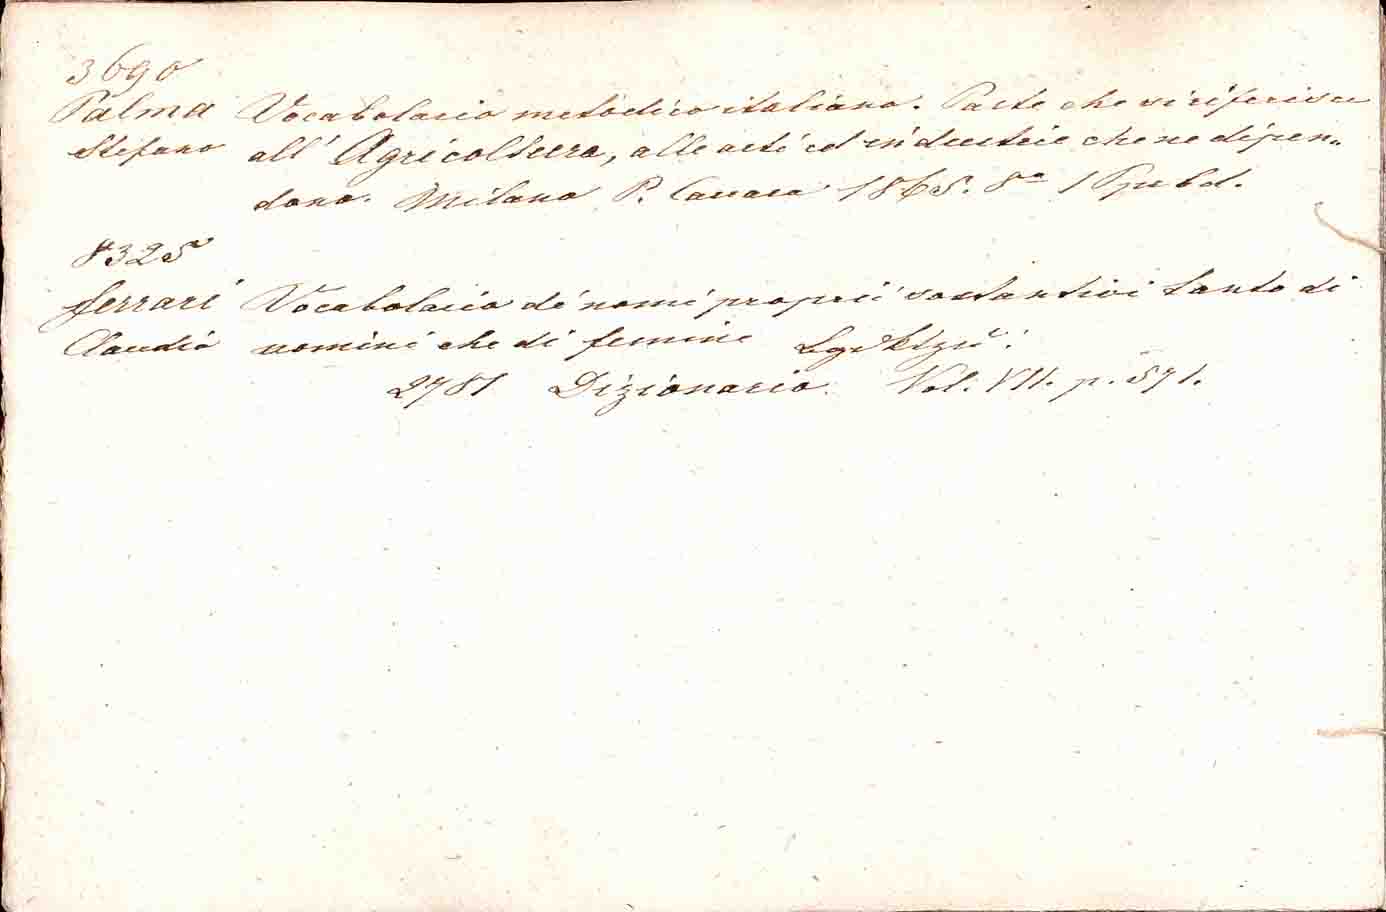 3690
Palma Vocabolario metodico italiano. Parte che si riferisce
Stefano all' Agricoltura, alle arti ed industrie che ne dipen-
dono. Milano P. Carrara 1865. 8° 1 Ppbd.
8325
Ferrari Vocabolario de' nomi proprii sostantivi tanto di
Claudio uomini che di femine
2781 Dizionario. Vol. VII. p. 571.